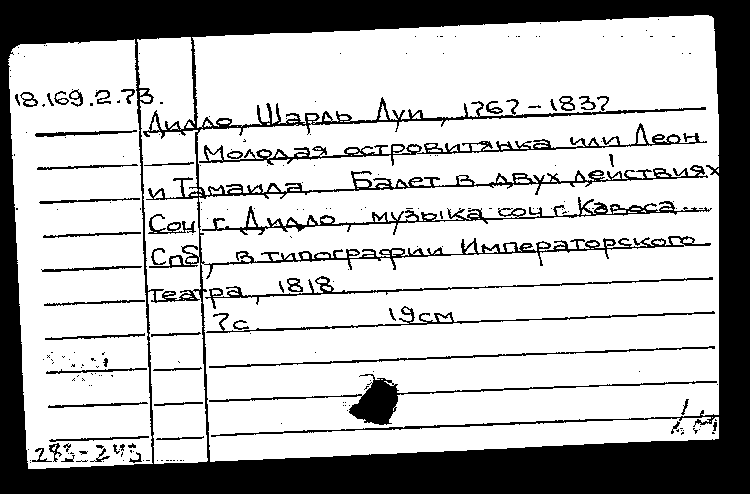 18.169.2.73.
Дидло, Шарль Луи, 1767-1837
Молодая островитянка или Леон
и Тамаида Балет в двух действиях
Соч г. Дидло, музыка соч г. Кавоса...
Спб, в типографии Императорского
театра, 1818.
7с 19см
283-243